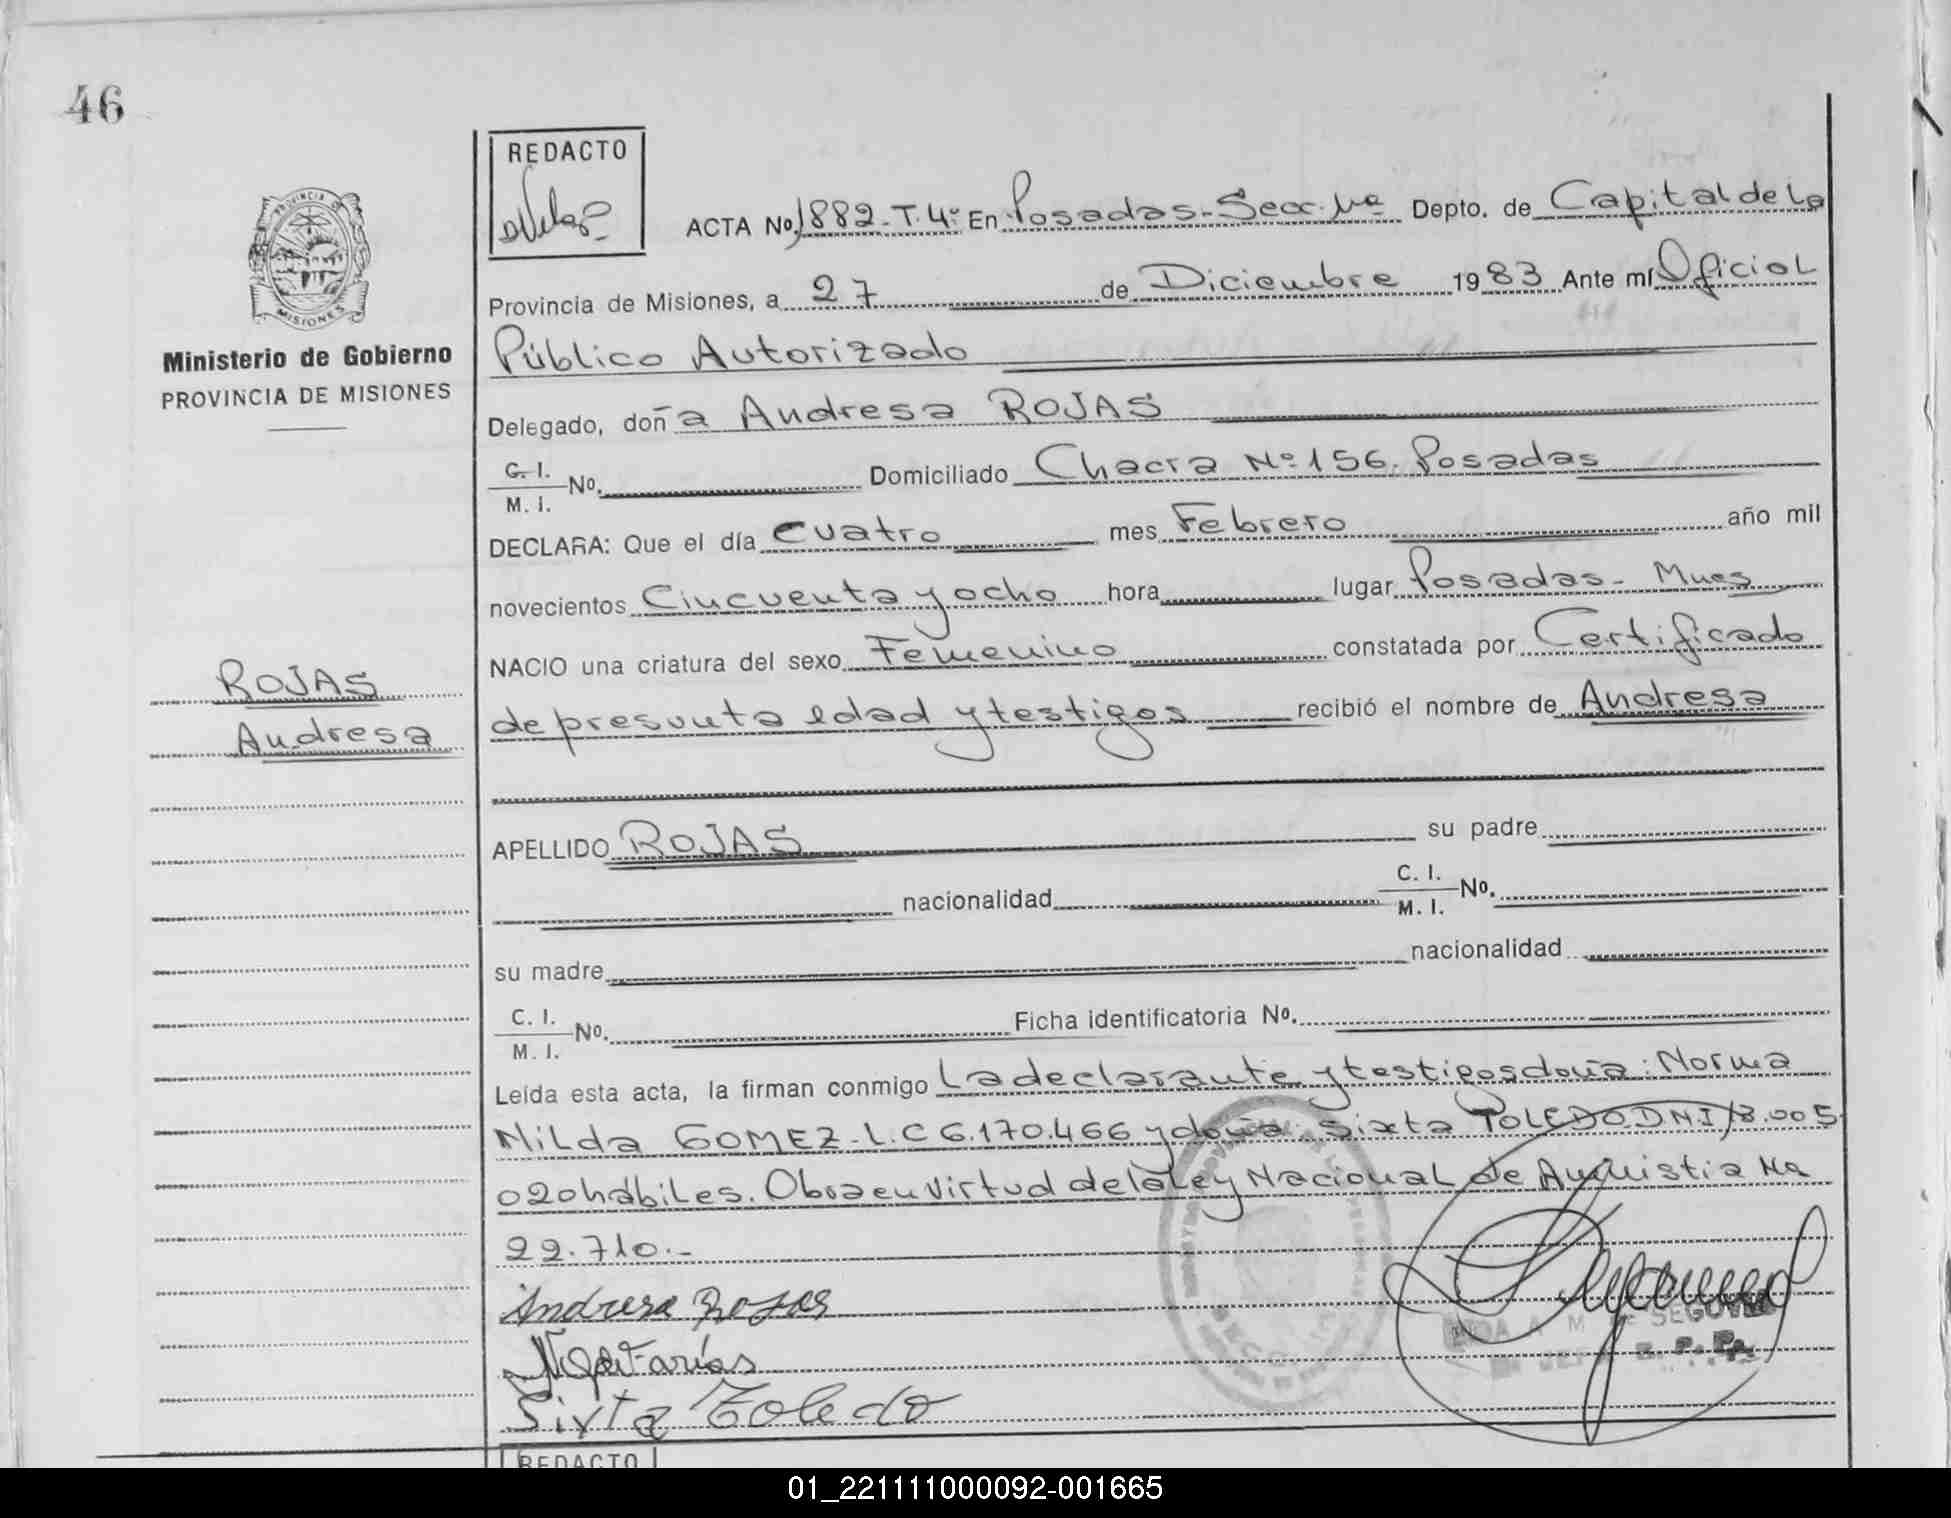 46
REDACTO
ACTA Nº 1882-T.4º En Posadas-Secc. 1ra Depto. de Capital de la
Provincia de Misiones, a 27 de Diciembre 1983 Ante mí Oficial
PROVINCIA DE
MISIONES
Ministerio de Gobierno
PROVINCIA DE MISIONES
Público Autorizado
Delegado, doña Andresa ROJAS
C. I.
M. I. Nº. Domiciliado Chacra Nº 156. Posadas
DECLARA: Que el día cuatro mes Febrero año mil
novecientos Cincuenta y ocho hora lugar Posadas - Mnes
NACIO una criatura del sexo Femenino constatada por Certificado
ROJAS
Andresa
de presunta edad y testigos recibió el nombre de Andresa
APELLIDO ROJAS su padre
nacionalidad C. I.
M. I. Nº.
su madre nacionalidad
C. I.
M. I. Nº. Ficha identificatoria Nº.
Leída esta acta, la firman conmigo La declarante y testigos doña: Norma
Nilda GOMEZ-L.C 6.170.466 y doña: Sixta TOLEDO D.N.I 18.005
020 hábiles. Obra en virtud de la Ley Nacional de Amnistia Nº
22.710.-
Andresa Rojas
Sixta Toledo
A. M. de SEGOVIA
REDACTO
01_221111000092-001665